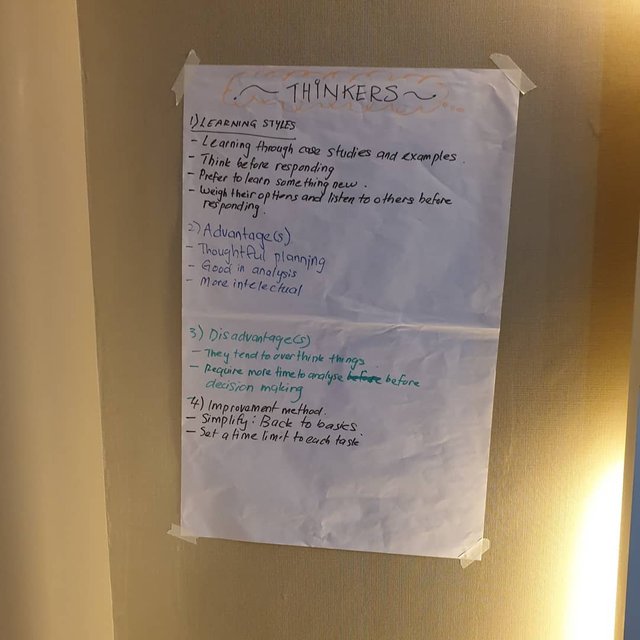 ~ THINKERS ~
1) LEARNING STYLES
- Learning through case studies and examples.
- Think before responding
- Prefer to learn something new.
- Weigh their options and listen to others before
responding.
2) Advantage(s)
- Thoughtful planning
- Good in analysis
- More intelectual
3) Disadvantage(s)
- They tend to over think things
- Require more time to analyse before before
decision making
4) Improvement method.
- Simplify: Back to basics.
- Set a time limit to each task